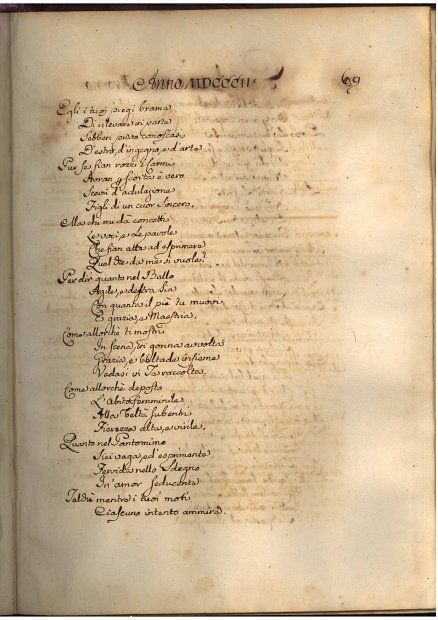 Anno MDCCCII
69
Egli i tuoi pregi brama
Di rilevare in parte
Sebben privo conoscasi
D'estro, d'ingegno, e d'arte
Pur se fian rozzi i carmi
Avran p scorta è vero
Scevri d'adulazione
Figli di un cuor sincero.
Ma chi mi dà concetti
Le voci e le parole
Che fian atte ad esprimere
Quel che da me si vuole?
Per dir quanto nel Ballo
Agile, e destra sia
Con quanta il piè tu muovi
E grazia, e Maestria.
Come allorchè ti mostri
In scena, in gonna avvolta
Grazia, e beltade insieme
Vedasi in Te raccolta.
Come allorchè deposto
L'abito femminile
Alla beltà subentri
Fierezza alta, e virile.
Quanto nel Pantomimo
Sei vaga, ed esprimente
Fervida nello Sdegno
In amor seducente
Taldì mentre i tuoi moti
Ciascuno intento ammira.